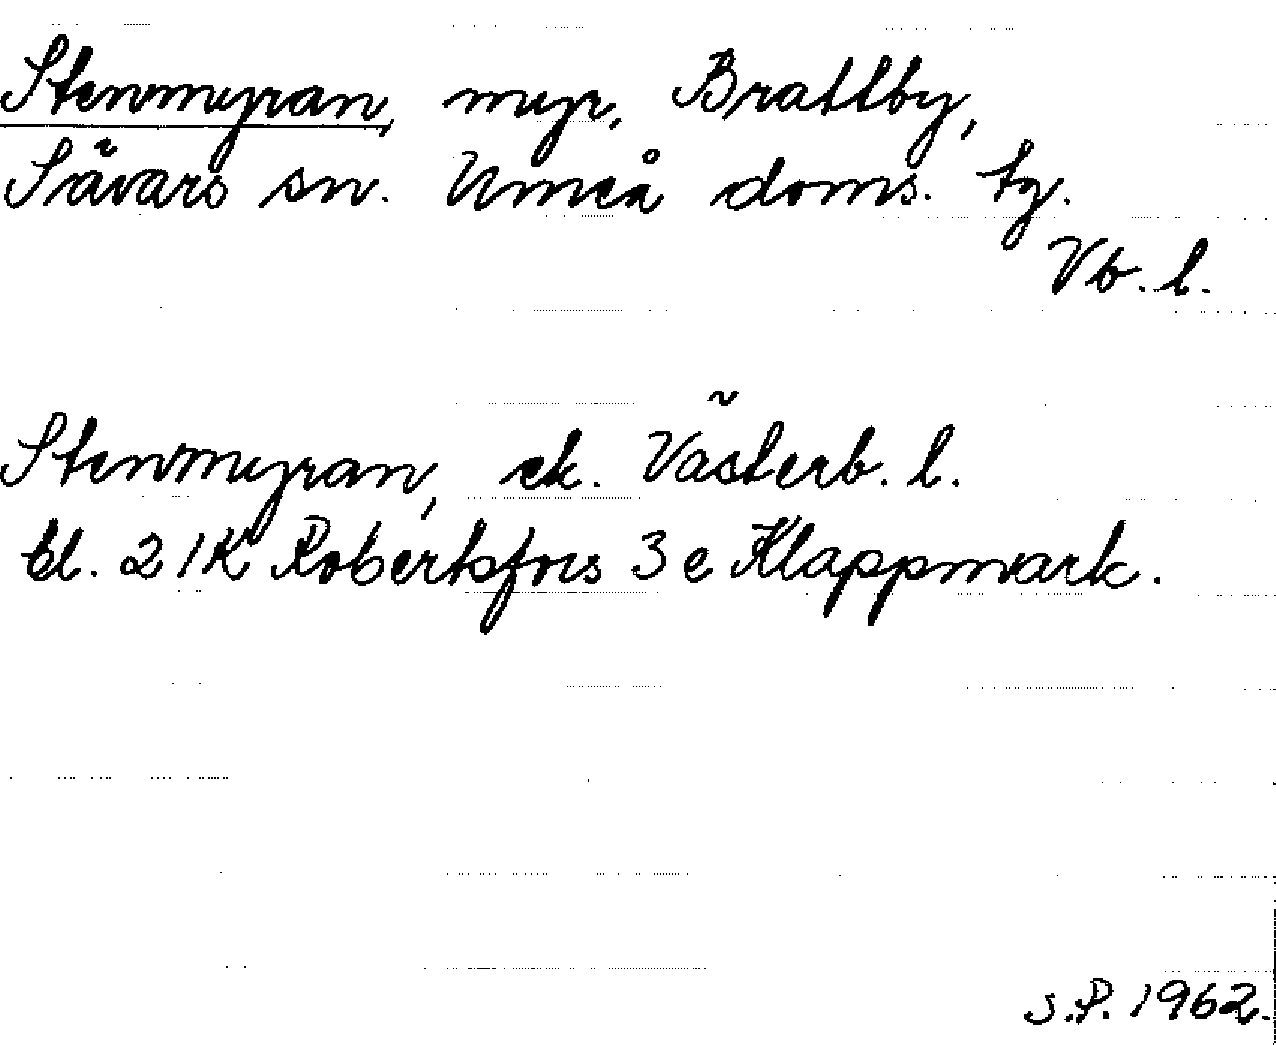 Stenmyran, myr, Brattby,
Sävars sn. Umeå doms. tg.
Vb. l.
Stenmyran, ek. Västerb. l.
bl. 21K Robertsfors 3 e Klappmark.
S.P. 1962.